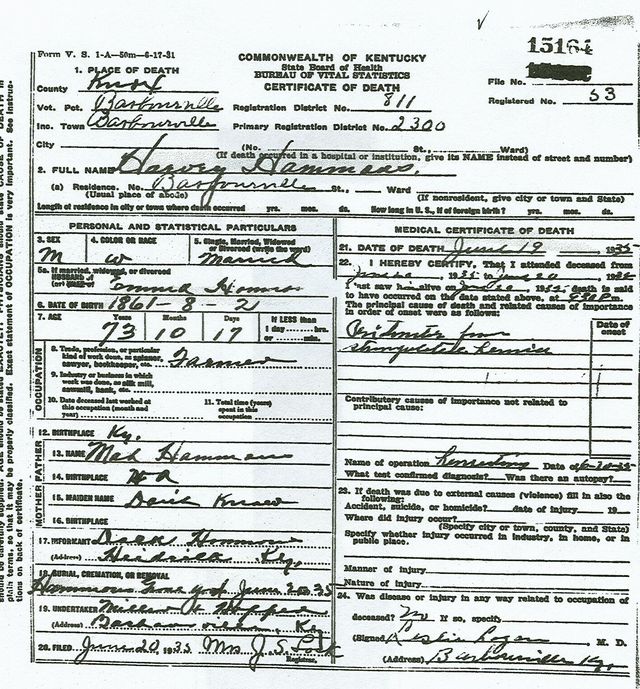 15164
Form V. S. 1-A—50m—6-17-31
COMMONWEALTH OF KENTUCKY
State Board of Health
BUREAU OF VITAL STATISTICS
CERTIFICATE OF DEATH
File No.
Registered No. 53
1. PLACE OF DEATH
County Knox
Vot. Pct. Barbourville Registration District No. 811
Inc. Town Barbourville Primary Registration District No. 2300
City (No. St., Ward)
(If death occurred in a hospital or institution, give its NAME instead of street and number)
2. FULL NAME Harvey Hammons.
(a) Residence. No. Barbourville St., Ward
(Usual place of abode) (If nonresident, give city or town and State)
Length of residence in city or town where death occurred yrs. mos. ds. How long in U. S., if of foreign birth? yrs. mos. ds.
PERSONAL AND STATISTICAL PARTICULARS
3. SEX 4. COLOR OR RACE 5. Single, Married, Widowed or Divorced (write the word)
M W Married
5a. If married, widowed, or divorced
HUSBAND of
(or) WIFE of
6. DATE OF BIRTH 1861-8-2
7. AGE Years Months Days If LESS than
73 10 17 1 day hrs.
or min.
OCCUPATION
8. Trade, profession, or particular
kind of work done, as spinner,
sawyer, bookkeeper, etc. Farmer
9. Industry or business in which
work was done, as silk mill,
sawmill, bank, etc.
10. Date deceased last worked at
this occupation (month and
year)
11. Total time (years)
spent in this
occupation
12. BIRTHPLACE Ky.
FATHER
13. NAME Hammons
14. BIRTHPLACE
MOTHER
15. MAIDEN NAME
16. BIRTHPLACE
17. INFORMANT Hammons
(Address) Heidrick Ky.
18. BURIAL, CREMATION, OR REMOVAL
Hammons Grave yard June 20 35
19. UNDERTAKER
(Address) Barbourville, Ky
20. FILED June 20 1935 Mrs J. S. Lock
Registrar.
MEDICAL CERTIFICATE OF DEATH
21. DATE OF DEATH June 19 1935
22. I HEREBY CERTIFY, That I attended deceased from
I last saw him alive on death is said
to have occurred on the date stated above, at
The principal cause of death and related causes of importance
in order of onset were as follows:
Date of onset
from
hernia
Contributory causes of importance not related to
principal cause:
Name of operation Date of
What test confirmed diagnosis? Was there an autopsy?
23. If death was due to external causes (violence) fill in also the
following:
Accident, suicide, or homicide? date of injury 19
Where did injury occur?
(Specify city or town, county, and State)
Specify whether injury occurred in industry, in home, or in
public place.
Manner of injury
Nature of injury
24. Was disease or injury in any way related to occupation of
deceased? No If so, specify
(Signed) Leslie Logan M. D.
(Address) Barbourville Ky.